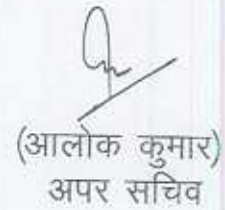 (आलोक कुमार)
अपर सचिव